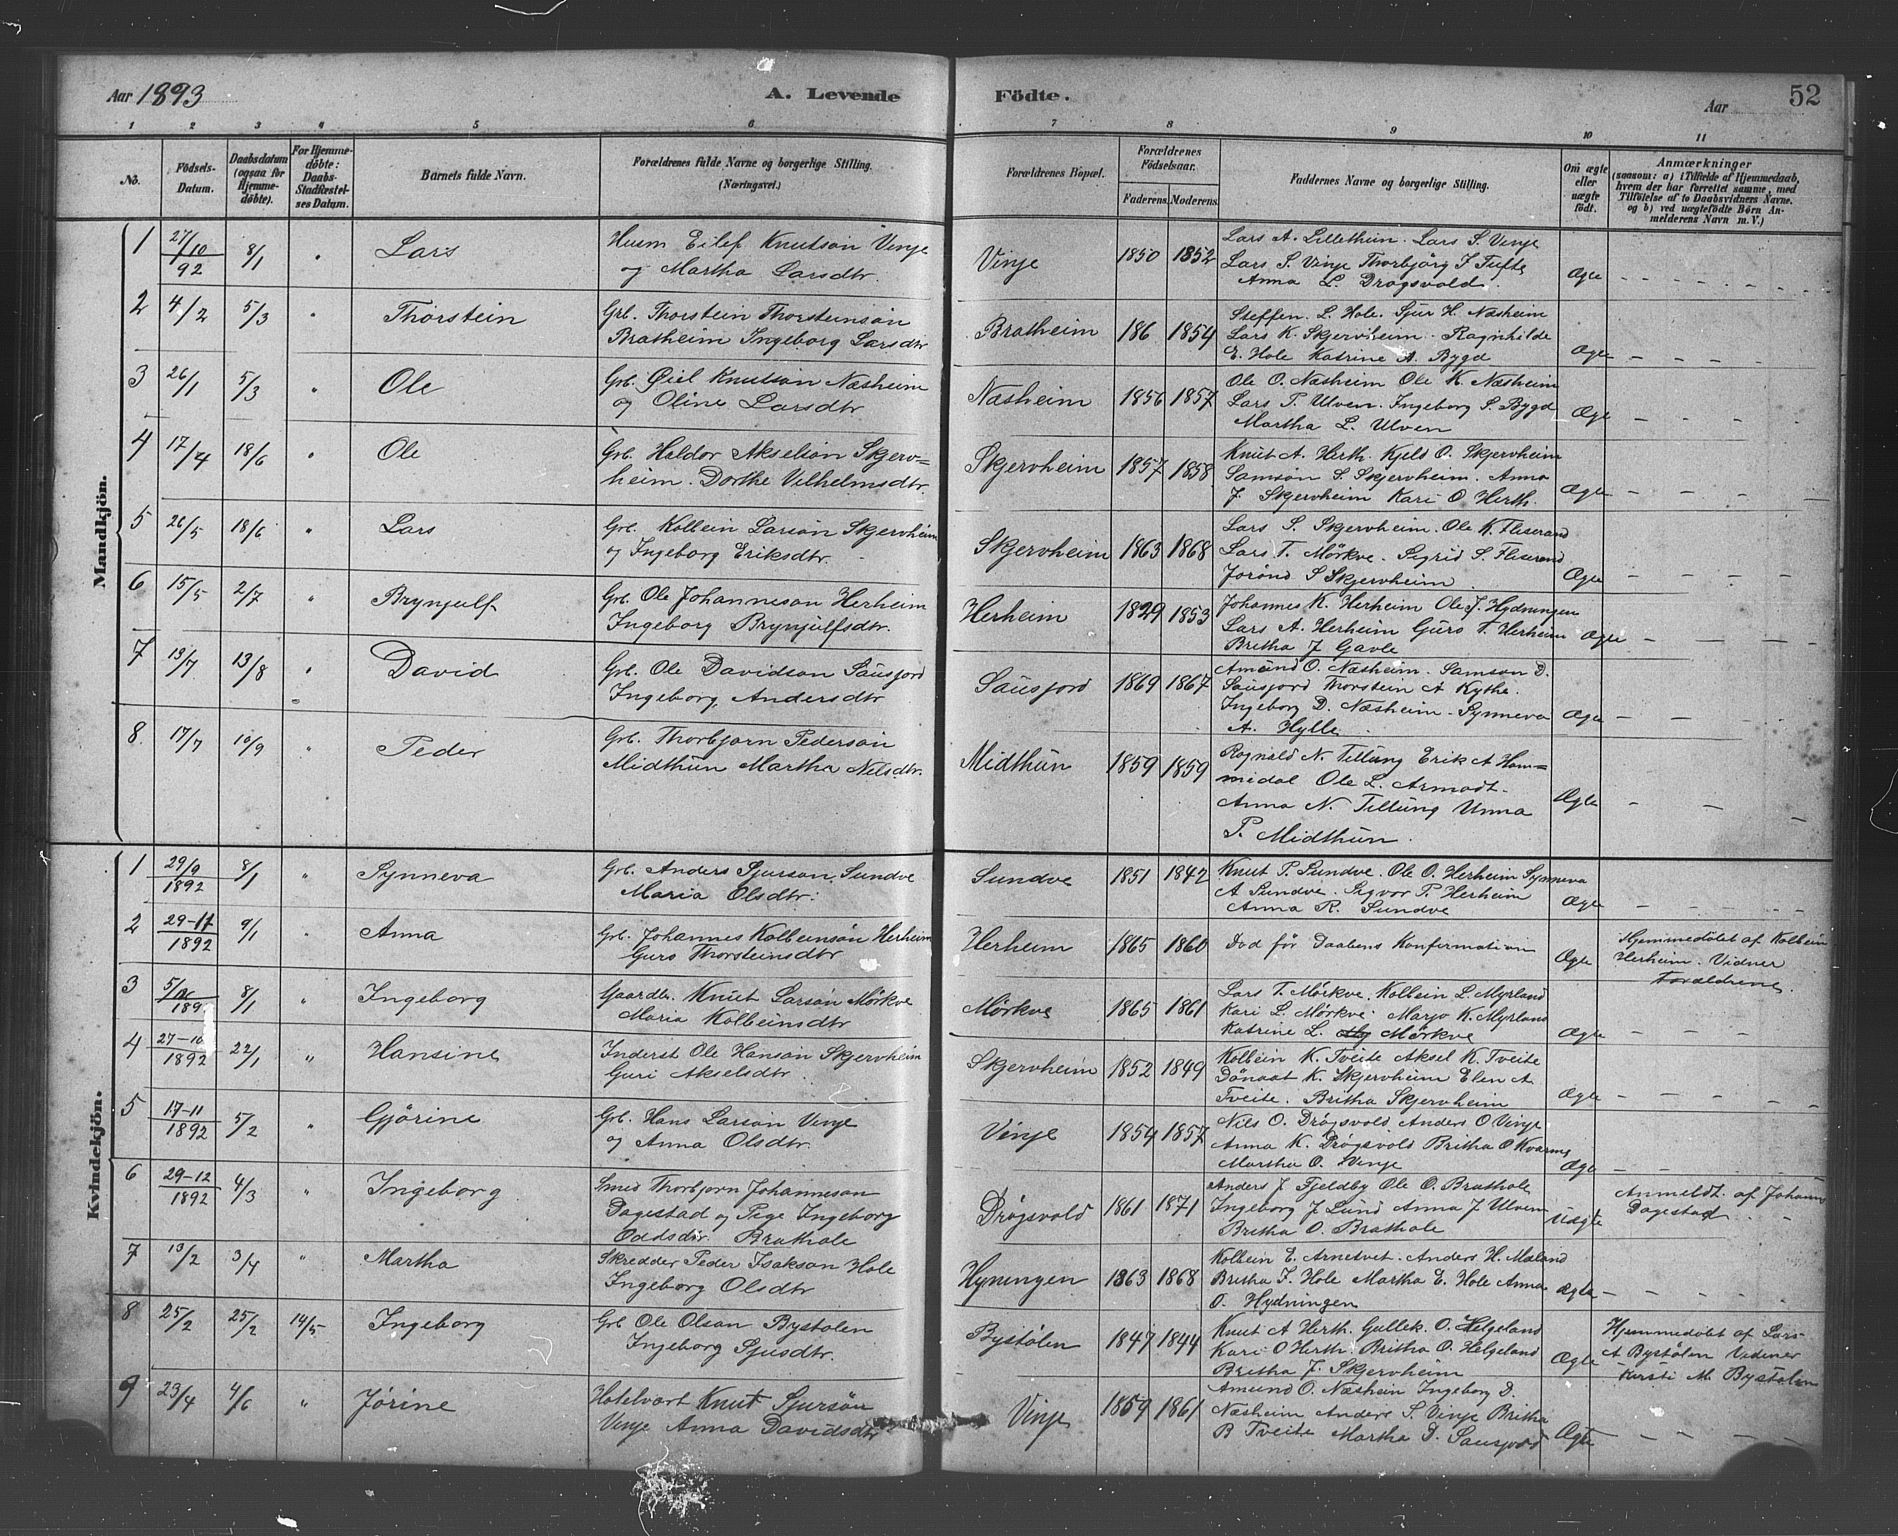 Aar 1893 A. Levende Födte. Aar 52
1 2 3 4 5 6 7 8 9 10 11
No. Födsels-Datum. Daabsdatum (ogsaa for Hjemmedöbte). For Hjemmedöbte: Daabs-Stadfæstelses Datum. Barnets fulde Navn. Forældrenes fulde Navne og borgerlige Stilling. (Næringsvei.) Forældrenes Bopæl. Forældrenes Födselsaar. Faderens. Moderens. Faddernes Navne og borgerlige Stilling. Om ægte eller uægte födt. Anmærkninger (saasom: a) i Tilfælde af Hjemmedaab, hvem der har forrettet samme, med Tilföielse af to Daabsvidners Navne, og b) ved uægtefödte Börn Anmelderens Navn m. V.)
Mandkjön.
1 27/10 92 8/1 " Lars Husm Eilef Knutson Vinje
og Martha Larsdtr. Vinje 1850 1852 Lars A. Lillethun. Lars S. Vinje
Lars S. Vinje Thorbjörg I Tufte
Anna L. Drøgsvold. Ægte
2 4/2 5/3 " Thorstein Grb. Thorstein Thorsteinsön
Bratheim Ingeborg Larsdtr Bratheim 186 1854 Steffen. L. Hole. Sjur H. Næsheim
Lars K. Skjervheim. Ragnhilde
E. Hole Katrine A. Bygd Ægte
3 26/1 5/3 " Ole Grb. Eiel Knutsön Næsheim
og Oline Larsdtr Næsheim 1856 1857 Ole O. Næsheim Ole K. Næsheim
Lars T. Ulven. Ingeborg S. Bygd
Martha L. Ulven Ægte
4 17/4 18/6 " Ole Grb. Haldor Akselsön Skjerv=
heim. Dorthe Vilhelmsdtr. Skjervheim 1857 1858 Knut A. Herth. Kjeld O. Skjervheim
Samsön S. Skjervheim. Anna
J. Skjervheim Kari O. Herth. Ægte
5 26/5 18/6 " Lars Grb. Kolbein Larsön Skjervheim
og Ingeborg Eriksdtr. Skjervheim 1863 1868 Lars S. Skjervheim. Ole K. Fliserand
Lars T. Mörkve. Sigrid S. Fliserand
Jorönd S Skjervheim Ægte
6 15/5 2/7 " Brynjulf Grb. Ole Johanneson Herheim
Ingeborg Brynjulfsdtr. Herheim 1829 1853 Johannes K. Herheim Ole J. Hydningen
Lars A. Herheim Guro T. Herheim
Britha J Gavle Ægte
7 13/7 13/8 " David Grb. Ole Davidson Sausjord
Ingeborg Andersdtr Sausjord 1869 1867 Amund O. Næsheim. Samson D.
Sausjord Thorstein A Kythe.
Ingeborg D. Næsheim. Synneva
A. Hylle. Ægte
8. 17/7 10/9 " Peder Grb. Thorbjorn Pedersön
Midthun Martha Nilsdtr. Midthun 1859 1859 Rognald N. Tillung Erik A Ham=
medal Ole L. Armodt.
Anna N. Tillung Unna
P. Midthun. Ægte
Kvindekjön.
1 29/9 1892 8/1 " Synneva Grb. Anders Sjurson Sundve
Maria Olsdtr. Sundve 1851 1842 Knut P. Sundve. Ole O. Herheim Synneva
A Sundve. Sigvor P. Herheim
Anna R. Sundve Ægte
2 29-17 1892 9/1 " Anna Grb. Johannes Kolbeinsön Herheim
Guro Thorsteinsdtr Herheim 1865 1860 Dod för Daabens Konfirmation Ægte Hjemmedöbt af Kolbein
Herheim. Vidner
Forældrene.
3 8/1 " Ingeborg Gaardbr. Knut Larsön Mörkve
Maria Kolbeinsdtr Mörkve 1865 1861 Lars T. Mörkve. Kolbein L. Myrland
Kari L. Mörkve. Marjo K. Myrland
Katrine L. Mörkve Ægte
4 27-10 1892 22/1 " Hansine Inderst Ole Hansön Skjervheim
Guri Akselsdtr. Skjervheim 1852 1849 Kolbein K. Tveite Aksel K. Tveite
Dönaat K. Skjervheim Elen A.
Tveite. Britha Skjervheim Ægte
5 17-11 1892 5/2 " Gjörine Grb. Hans Larsön Vinje
og Anna Olsdtr. Vinje 1854 1857 Nils O. Drøgsvold. Anders O Vinje
Anna K. Drøgsvold Britha O Kvarme
Martha O. Vinje Ægte
6 29-12 1892 4/3 " Ingeborg Smed Thorbjorn Johanneson
Dagestad og Pige Ingeborg
Oddsdtr. Brathole Drøgsvold 1861 1871 Anders J Fjeldby Ole O. Brathole
Ingeborg J Lund Anna J Ulven
Britha O. Brathole Uægte Anmeldt af Johann
Dagestad
7 13/2 3/4 " Martha Skredder Peder Isakson Hole
Ingeborg Olsdtr Hyningen 1863 1868 Kolbein E. Arnetvet. Anders H. Mæland
Britha I. Hole Martha E. Hole Anna
O. Hydningen Ægte
8 25/2 25/2 14/5 Ingeborg Grb Ole Olson Bystölen
Ingeborg Sjusdtr. Bystölen 1847 1844 Knut A Herth. Gullek O. Helgeland
Kari O Herth. Britha O. Helgeland
Britha J. Skjervheim Ægte Hjemmedöbt af Lars
A Bystölen Vidner
Kirsti M. Bystölen
9 23/4 4/6 " Jörine Hotelvært Knut Sjursön
Vinje Anna Davidsdtr Vinje 1859 1861 Amund O. Næsheim Ingeborg D.
Næsheim Anders S. Vinje Britha
B Tveite Martha D. Sausjord Ægte